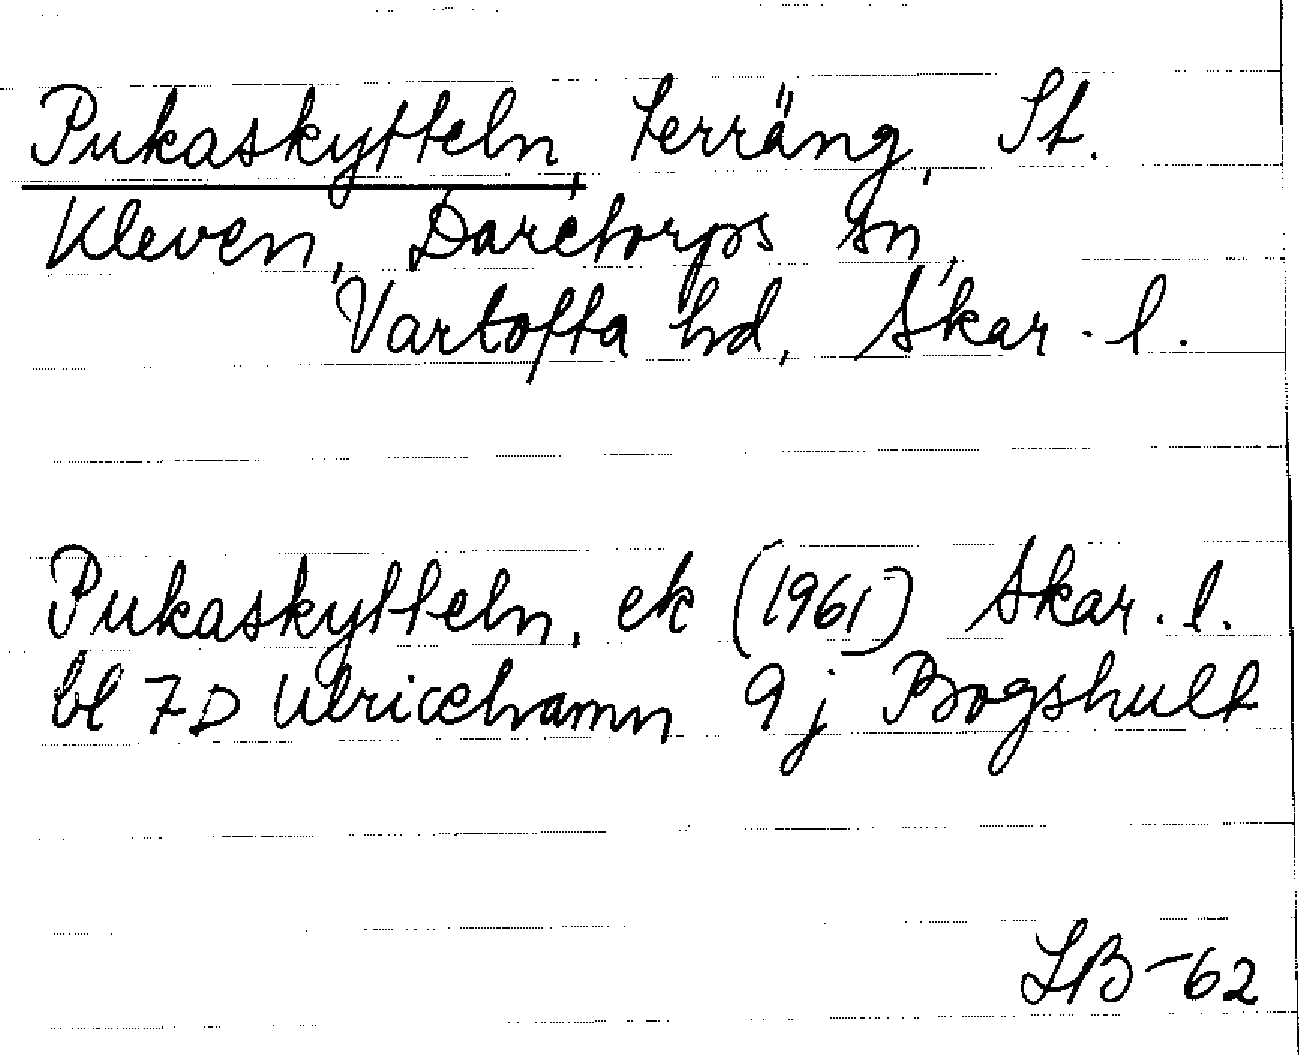 Pukaskytteln, terräng, St.
Kleven, Daretorps sn,
Vartofta hd, Skar. l.
Pukaskytteln, ek (1961) Skar. l.
bl 7D Ulricehamn 9j Bogshult
LB-62